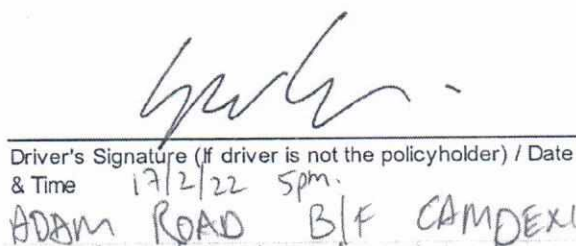 Driver's Signature (If driver is not the policyholder) / Date
& Time 17/2/22 5pm.
ADAM ROAD B/F